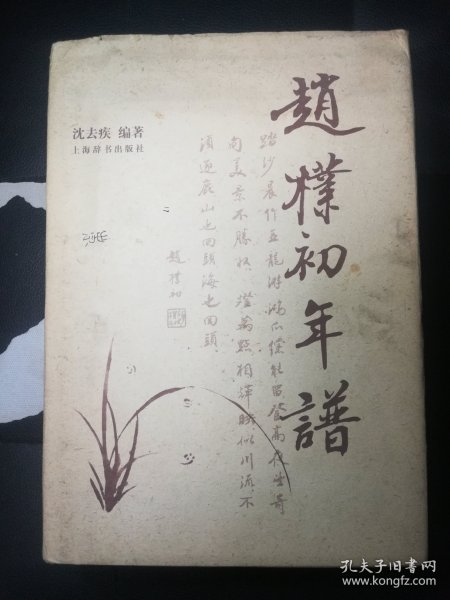 趙樸初年譜
沈去疾 编著
上海辞书出版社
踏沙晨作五龍游鴻爪
留登高夜坐奇
南美景不勝收燈萬點相輝映似川流不
須逝鹿山也回頭海也回頭
趙樸初
孔夫子旧书网
www.kongfz.com